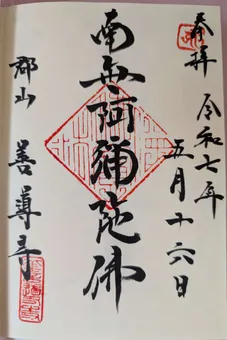 奉拝
令和七年
五月十六日
南無阿彌陀佛
郡山 善導寺